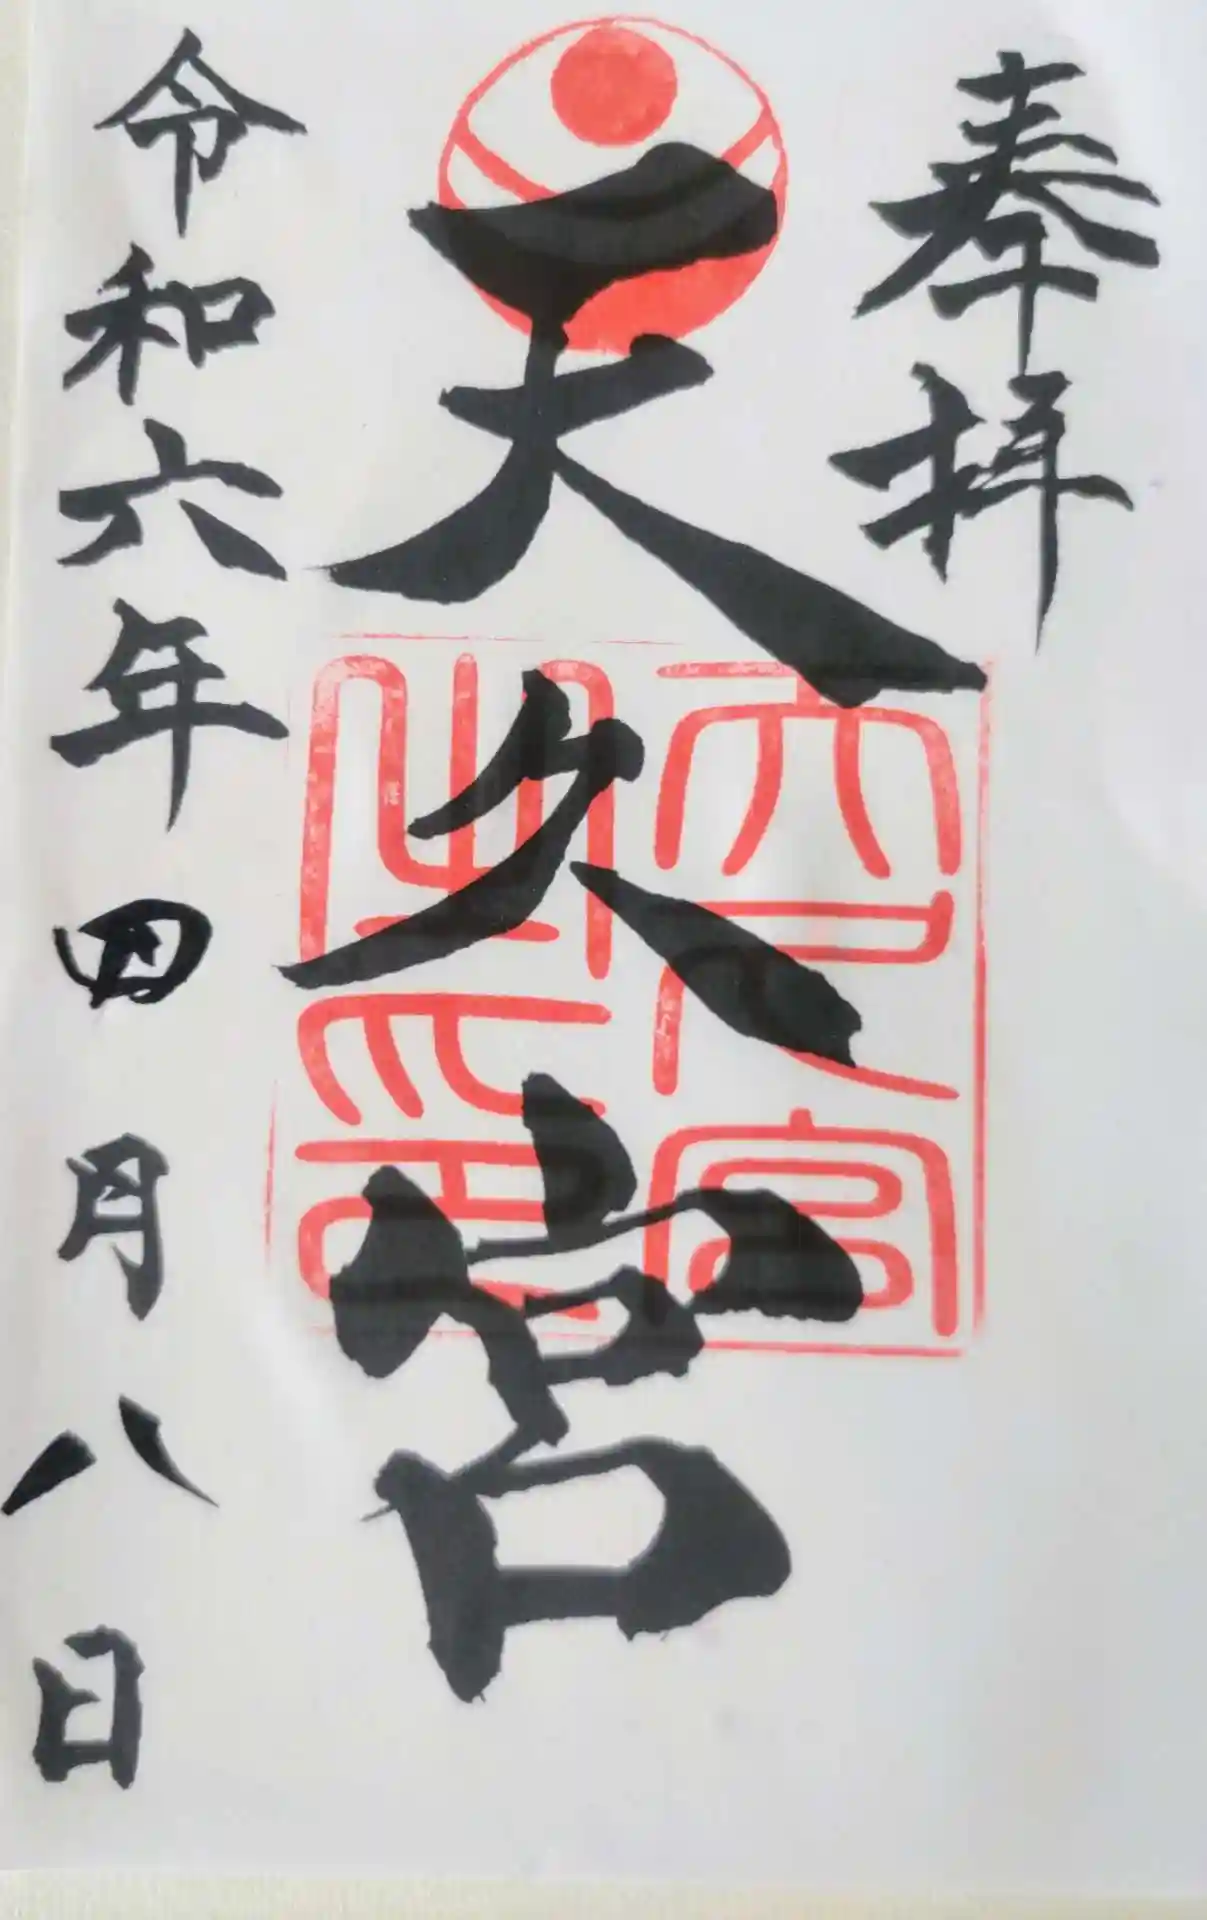 奉拝
天久宮
天久宮
之印
令和六年四月八日